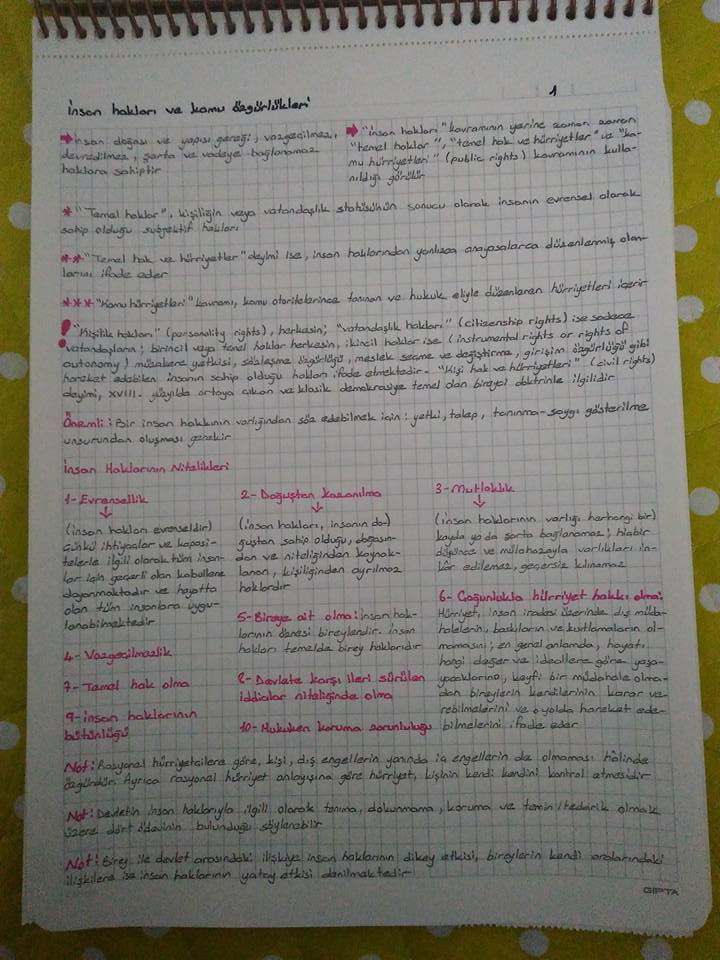 1
İnsan hakları ve kamu özgürlükleri
➡ İnsan doğası ve yapısı gereği, vazgeçilmez,
devredilmez, şarta ve vadeye bağlanamaz
haklara sahiptir
➡ "İnsan hakları" kavramının yerine zaman zaman
"temel haklar", "temel hak ve hürriyetler" ve "ka-
mu hürriyetleri" (public rights) kavramının kulla-
nıldığı görülür
* "Temel haklar", kişiliğin veya vatandaşlık statüsünün sonucu olarak insanın evrensel olarak
sahip olduğu subjektif hakları
** "Temel hak ve hürriyetler" deyimi ise, insan haklarından yanlızca anayasalarca düzenlenmiş olan-
larını ifade eder
*** "Kamu hürriyetleri" kavramı, kamu otoritelerince tanınan ve hukuk eliyle düzenlenen hürriyetleri içerir
! "Kişilik hakları" (personality rights), herkesin; "vatandaşlık hakları" (citizenship rights) ise sadece
vatandaşların; birincil veya temel haklar herkesin, ikincil haklar ise (instrumental rights or rights of
autonomy) müzakere yetkisi, sözleşme özgürlüğü, meslek seçme ve değiştirme, girişim özgürlüğü gibi
hareket edebilen insanın sahip olduğu hakları ifade etmektedir. "Kişi hak ve hürriyetleri" (civil rights)
deyimi, XVIII. yüzyılda ortaya çıkan ve klasik demokrasiye temel olan bireyci doktrinle ilgilidir
Önemli: Bir insan hakkının varlığından söz edebilmek için: yetki, talep, tanınma-saygı gösterilme
unsurundan oluşması gerekir
İnsan Haklarının Nitelikleri
1- Evrensellik
↓
(İnsan hakları evrenseldir)
Çünkü ihtiyaçlar ve kapasi-
telerle ilgili olarak tüm insan-
lar için geçerli olan kabullere
dayanmaktadır ve hayatta
olan tüm insanlara uygu-
lanabilmektedir
2- Doğuştan kazanılma
↓
(İnsan hakları, insanın do-)
ğuştan sahip olduğu, doğasın-
dan ve niteliğinden kaynak-
lanan, kişiliğinden ayrılmaz
haklardır
3- Mutlaklık
↓
(İnsan haklarının varlığı herhangi bir)
kayda ya da şarta bağlanamaz; hiçbir
düşünce ve mülahazayla varlıkları in-
kâr edilemez, geçersiz kılınamaz
4- Vazgeçilmezlik
5- Bireye ait olma: İnsan hak-
larının öznesi bireylerdir. İnsan
hakları temelde birey haklarıdır
6- Çoğunlukla hürriyet hakkı olma:
Hürriyet, insan iradesi üzerinde dış müda-
halelerin, baskıların ve kısıtlamaların ol-
mamasını; en genel anlamda, hayatı
hangi değer ve ideallere göre yaşa-
yacaklarına, keyfi bir müdahale olma-
dan bireylerin kendilerinin karar ve-
rebilmelerini ve o yolda hareket ede-
bilmelerini ifade eder
7- Temel hak olma
8- Devlete karşı ileri sürülen
iddialar niteliğinde olma
9- İnsan haklarının
bütünlüğü
10- Hukuken koruma sorunluluğu
Not: Rasyonel hürriyetçilere göre, kişi, dış engellerin yanında iç engellerin de olmaması hâlinde
özgürdür. Ayrıca rasyonel hürriyet anlayışına göre hürriyet, kişinin kendi kendini kontrol etmesidir
Not: Devletin insan haklarıyla ilgili olarak tanıma, dokunmama, koruma ve temin/tedarik olmak
üzere dört ödevinin bulunduğu söylenebilir
Not: Birey ile devlet arasındaki ilişkiye insan haklarının dikey etkisi, bireylerin kendi aralarındaki
ilişkilere ise insan haklarının yatay etkisi denilmektedir
GIPTA